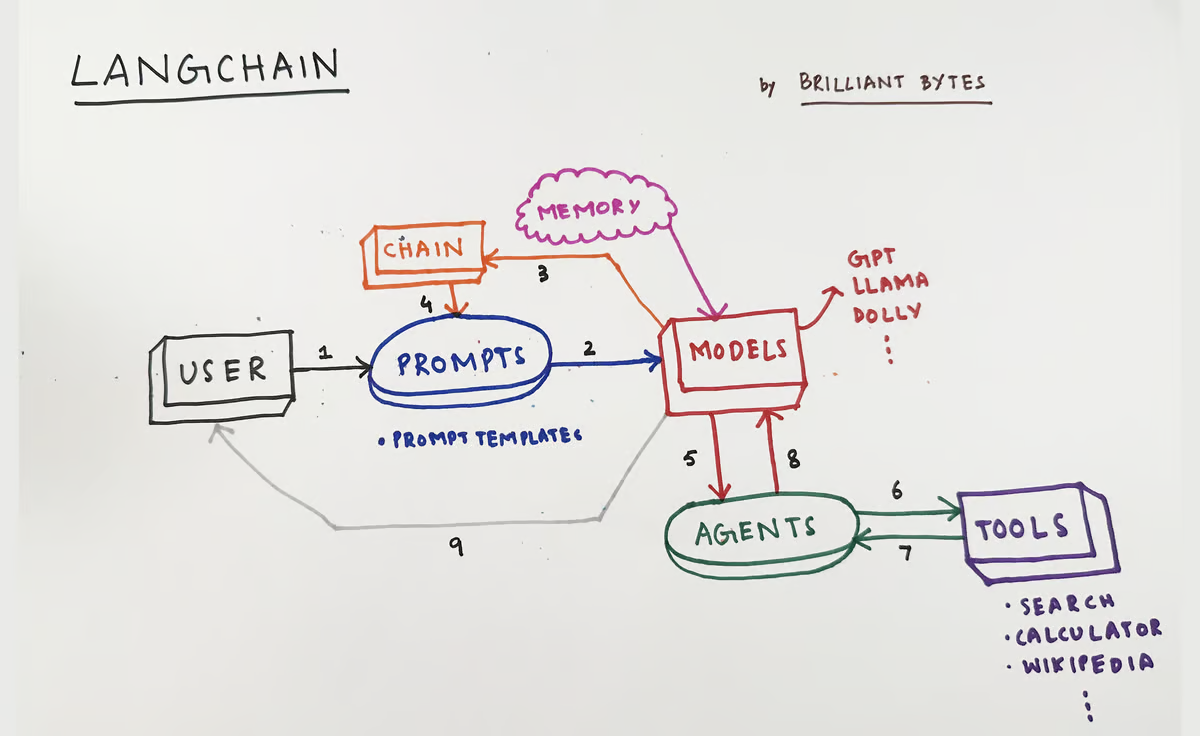 LANGCHAIN
by BRILLIANT BYTES
MEMORY
CHAIN
3
4
GPT
LLAMA
DOLLY
USER
1
PROMPTS
2
MODELS
• PROMPT TEMPLATES
5
8
9
AGENTS
6
7
TOOLS
• SEARCH
• CALCULATOR
• WIKIPEDIA